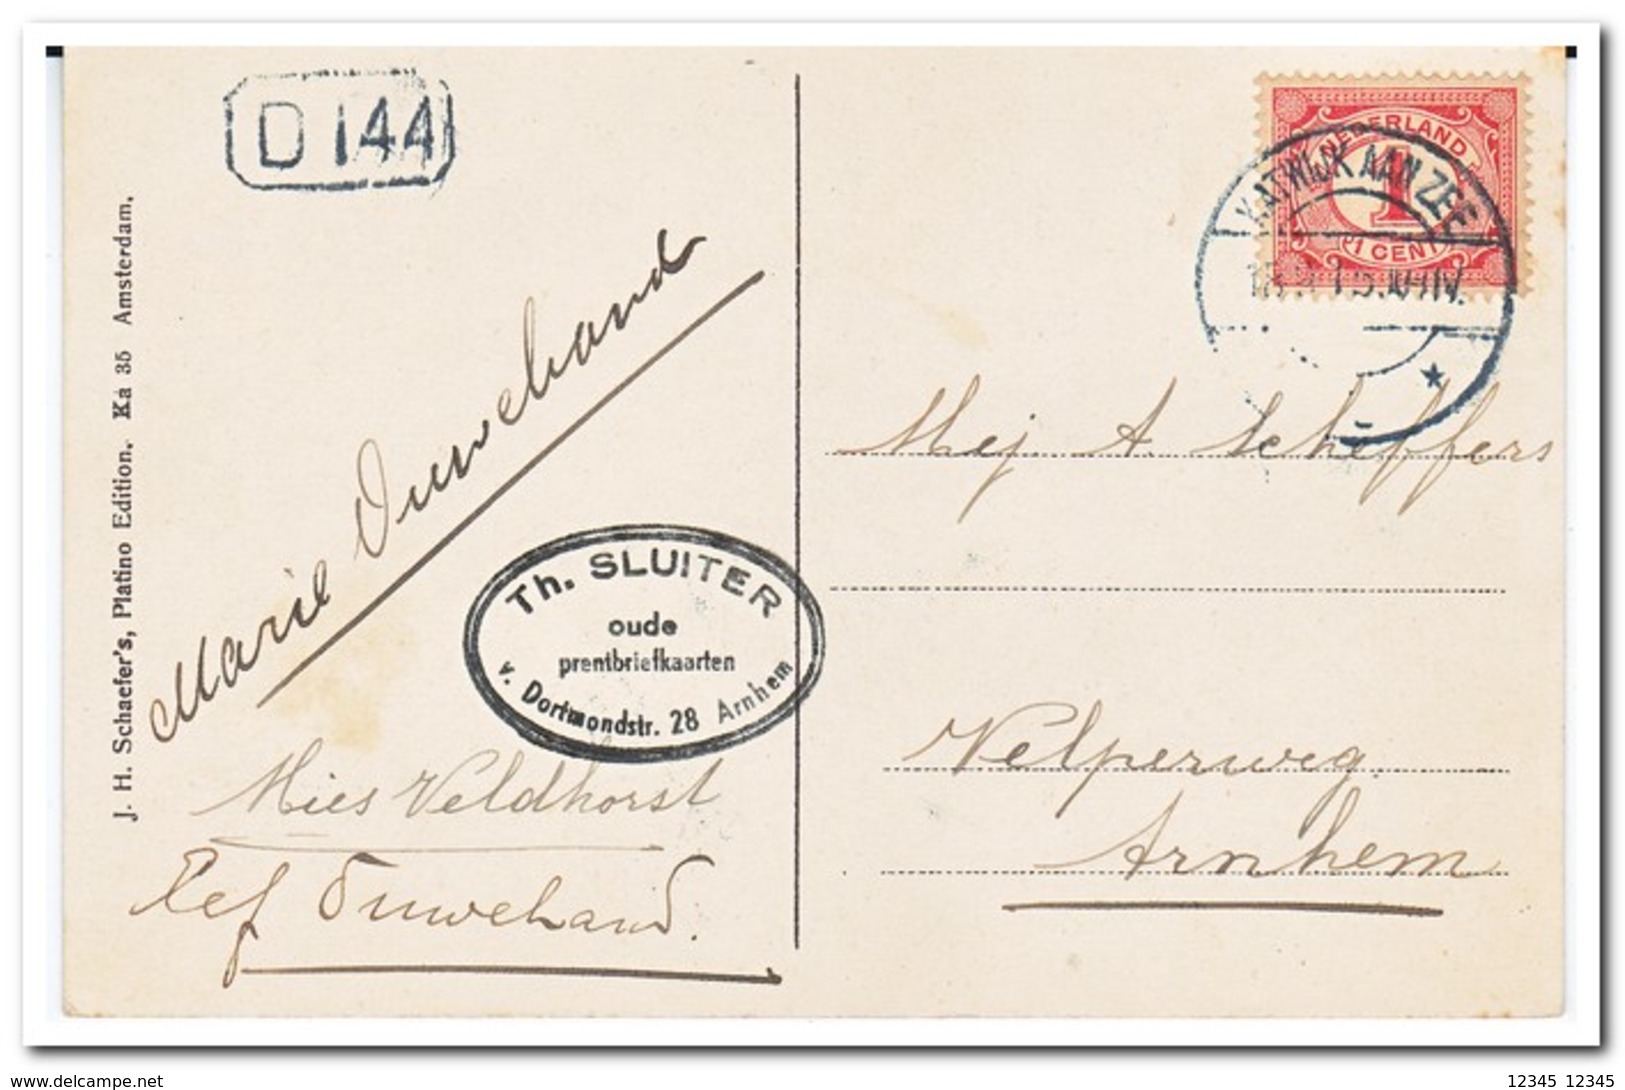 D 144
J. H. Schaefer's, Platino Edition. Ka 35 Amsterdam.
Marie Ouwehand
Th. SLUITER
oude
prentbriefkaarten
v. Dortmondstr. 28 Arnhem
Mies Veldhorst
Ouwehand.
NEDERLAND
1
1 CENT
KATWIJK AAN ZEE
Mej A. Scheffers
Velperweg.
Arnhem
www.delcampe.net
12345 12345